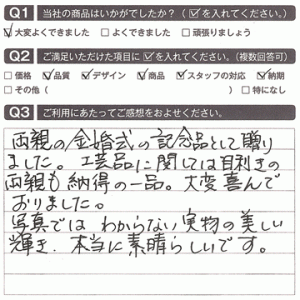 Q1 当社の商品はいかがでしたか?(☑を入れてください。)
☑大変よくできました □よくできました □頑張りましょう
Q2 ご満足いただけた項目に☑を入れてください。(複数回答可)
□価格 ☑品質 ☑デザイン ☑商品 ☑スタッフの対応 ☑納期
□その他( ) □特になし
Q3 ご利用にあたってご感想をおよせください。
両親の金婚式の記念品として贈り
ました。工芸品に関しては目利きの
両親も納得の一品。大変喜んで
おりました。
写真では わからない実物の美しい
輝き、本当に素晴らしいです。